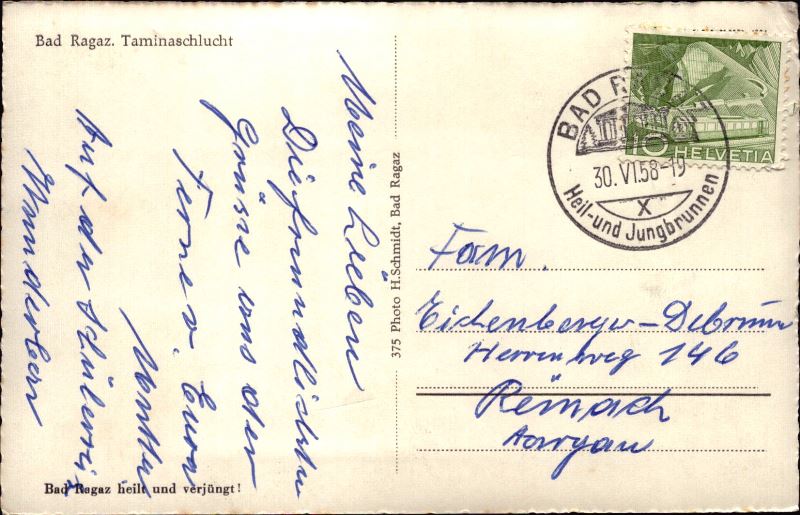 Bad Ragaz. Taminaschlucht
Meine Lieben
Die freundlichsten
Grüsse aus der
Ferne v. Eurer
Mutter
Auf der Schülerreise
Wunderbar
Bad Ragaz heilt und verjüngt!
375 Photo H. Schmidt, Bad Ragaz
BAD RAGAZ
30. VI.58-19
X
Heil-und Jungbrunnen
10 HELVETIA
Fam.
Eichenberger-Debrunner
Herrenweg 146
Reinach
Aargau